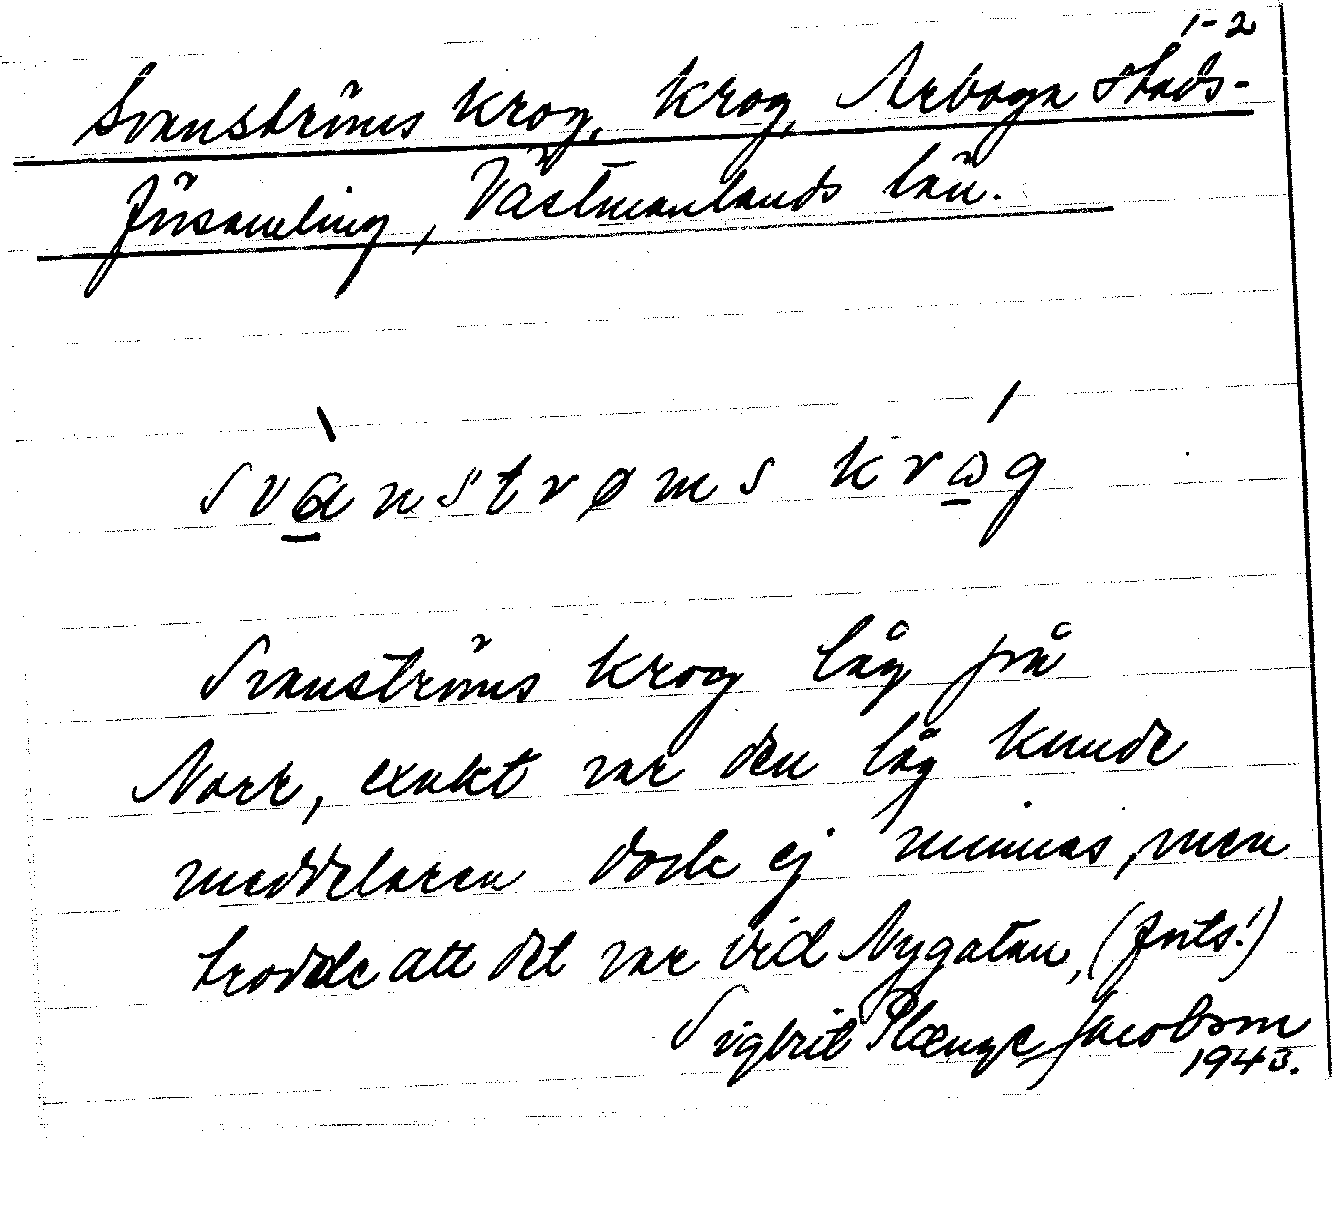 1-2
Svanströms krog, krog, Arboga stads-
församling, Västmanlands län.
svɑ̀nstrøms krɷ́g
Svanströms krog låg på
Norr, exakt var den låg kunde
meddelaren dock ej minnas, men
trodde att det var vid Nygatan, (forts.!)
Sigbrit Plænge Jacobson
1943.